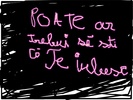 POATE ar
trebui să sti
că Te iubesc